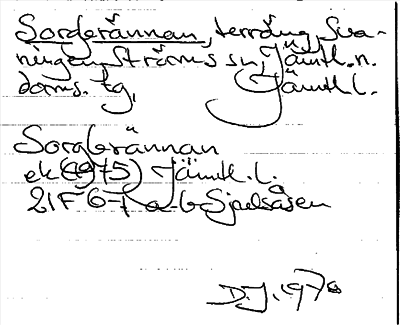 Sorgbrännan, terräng, Sva-
ningen, Ströms sn, Jämtl. n.
doms. tg, Jämtl l.
Sorgbrännan
ek (1975) Jämtl. l.
21F 6-7 a-b Sjulsåsen
D.J. 1976